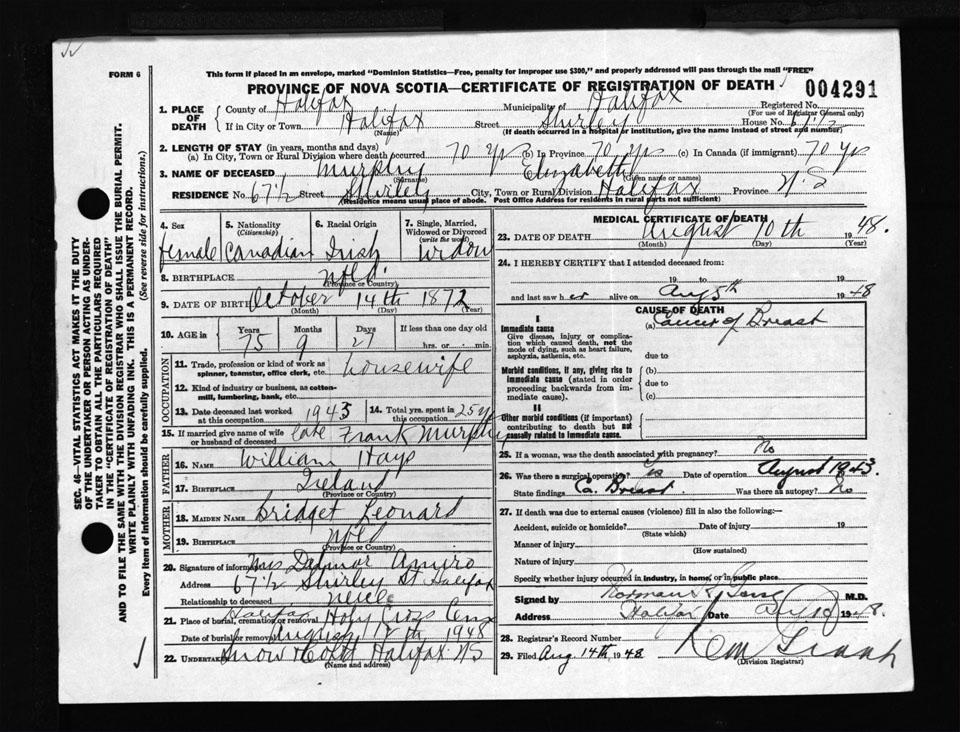 FORM 6
This form if placed in an envelope, marked "Dominion Statistics—Free, penalty for improper use $300," and properly addressed will pass through the mail "FREE"
PROVINCE OF NOVA SCOTIA—CERTIFICATE OF REGISTRATION OF DEATH
004291
1. PLACE OF DEATH
County of Halifax Municipality of Halifax Registered No.
(For use of Registrar General only)
If in City or Town Halifax Street Shirley House No. 67 1/2
(Name) (If death occurred in a hospital or institution, give the name instead of street and number)
2. LENGTH OF STAY (in years, months and days)
(a) In City, Town or Rural Division where death occurred 70 yrs (b) In Province 70 yrs (c) In Canada (if immigrant) 70 yrs
3. NAME OF DECEASED Murphy Elizabeth
(Surname) (Given name or names)
RESIDENCE No. 67 1/2 Street Shirley City, Town or Rural Division Halifax Province N.S
(Residence means usual place of abode. Post Office Address for residents in rural parts not sufficient)
4. Sex female
5. Nationality (Citizenship) Canadian
6. Racial Origin Irish
7. Single, Married, Widowed or Divorced (write the word) Widow
8. BIRTHPLACE Nfld.
(Province or Country)
9. DATE OF BIRTH October 14th 1872
(Month) (Day) (Year)
10. AGE in Years 75 Months 9 Days 27 If less than one day old
hrs. or min.
OCCUPATION
11. Trade, profession or kind of work as spinner, teamster, office clerk, etc. housewife
12. Kind of industry or business, as cotton-mill, lumbering, bank, etc.
13. Date deceased last worked at this occupation 1943
14. Total yrs. spent in this occupation 25 yr
15. If married give name of wife or husband of deceased late Frank Murphy
FATHER
16. NAME William Hays
17. BIRTHPLACE Ireland
(Province or Country)
MOTHER
18. MAIDEN NAME Bridget Leonard
19. BIRTHPLACE Nfld
(Province or Country)
20. Signature of informant Mrs Amiro
Address 67 1/2 Shirley St Halifax
Relationship to deceased neice
21. Place of burial, cremation or removal Halifax Holy Cross Cem
Date of burial or removal August 12th, 1948
22. UNDERTAKER Snow & Co Ltd Halifax NS
(Name and address)
MEDICAL CERTIFICATE OF DEATH
23. DATE OF DEATH August 10th 1948.
(Month) (Day) (Year)
24. I HEREBY CERTIFY that I attended deceased from:
19 to 19
and last saw her alive on Aug 5th 1948
CAUSE OF DEATH
I
Immediate cause (a) Cancer of Breast
Give disease, injury or complication which caused death, not the mode of dying, such as heart failure, asphyxia, asthenia, etc.
due to
Morbid conditions, if any, giving rise to immediate cause (stated in order proceeding backwards from immediate cause).
(b)
due to
(c)
II
Other morbid conditions (if important) contributing to death but not causally related to immediate cause.
25. If a woman, was the death associated with pregnancy? No
26. Was there a surgical operation? Yes Date of operation August 1943.
State findings Ca. Breast. Was there an autopsy? No
27. If death was due to external causes (violence) fill in also the following:—
Accident, suicide or homicide? Date of injury 19
(State which)
Manner of injury
(How sustained)
Nature of injury
Specify whether injury occurred in industry, in home, or in public place
Signed by Norman M.D.
Address Halifax Date 1948.
28. Registrar's Record Number
29. Filed Aug. 14th 1948
(Division Registrar)
SEC. 46—VITAL STATISTICS ACT MAKES IT THE DUTY
OF THE UNDERTAKER OR PERSON ACTING AS UNDER-
TAKER TO OBTAIN ALL THE PARTICULARS REQUIRED
IN THE "CERTIFICATE OF REGISTRATION OF DEATH"
AND TO FILE THE SAME WITH THE DIVISION REGISTRAR WHO SHALL ISSUE THE BURIAL PERMIT.
WRITE PLAINLY WITH UNFADING INK. THIS IS A PERMANENT RECORD.
Every item of information should be carefully supplied. (See reverse side for instructions.)